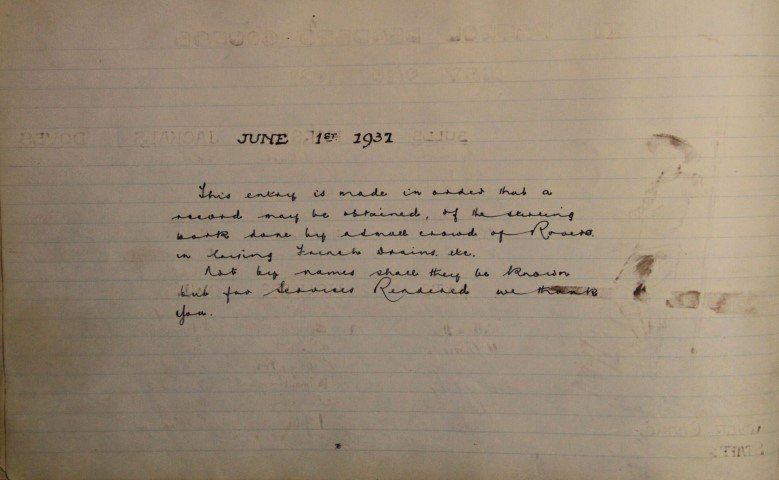 JUNE 1ST 1937
This entry is made in order that a
record may be obtained, of the sterling
work done by a small crowd of Rovers.
in laying French Drains. etc.
Not by names shall they be known
but for Services Rendered we thank
you.